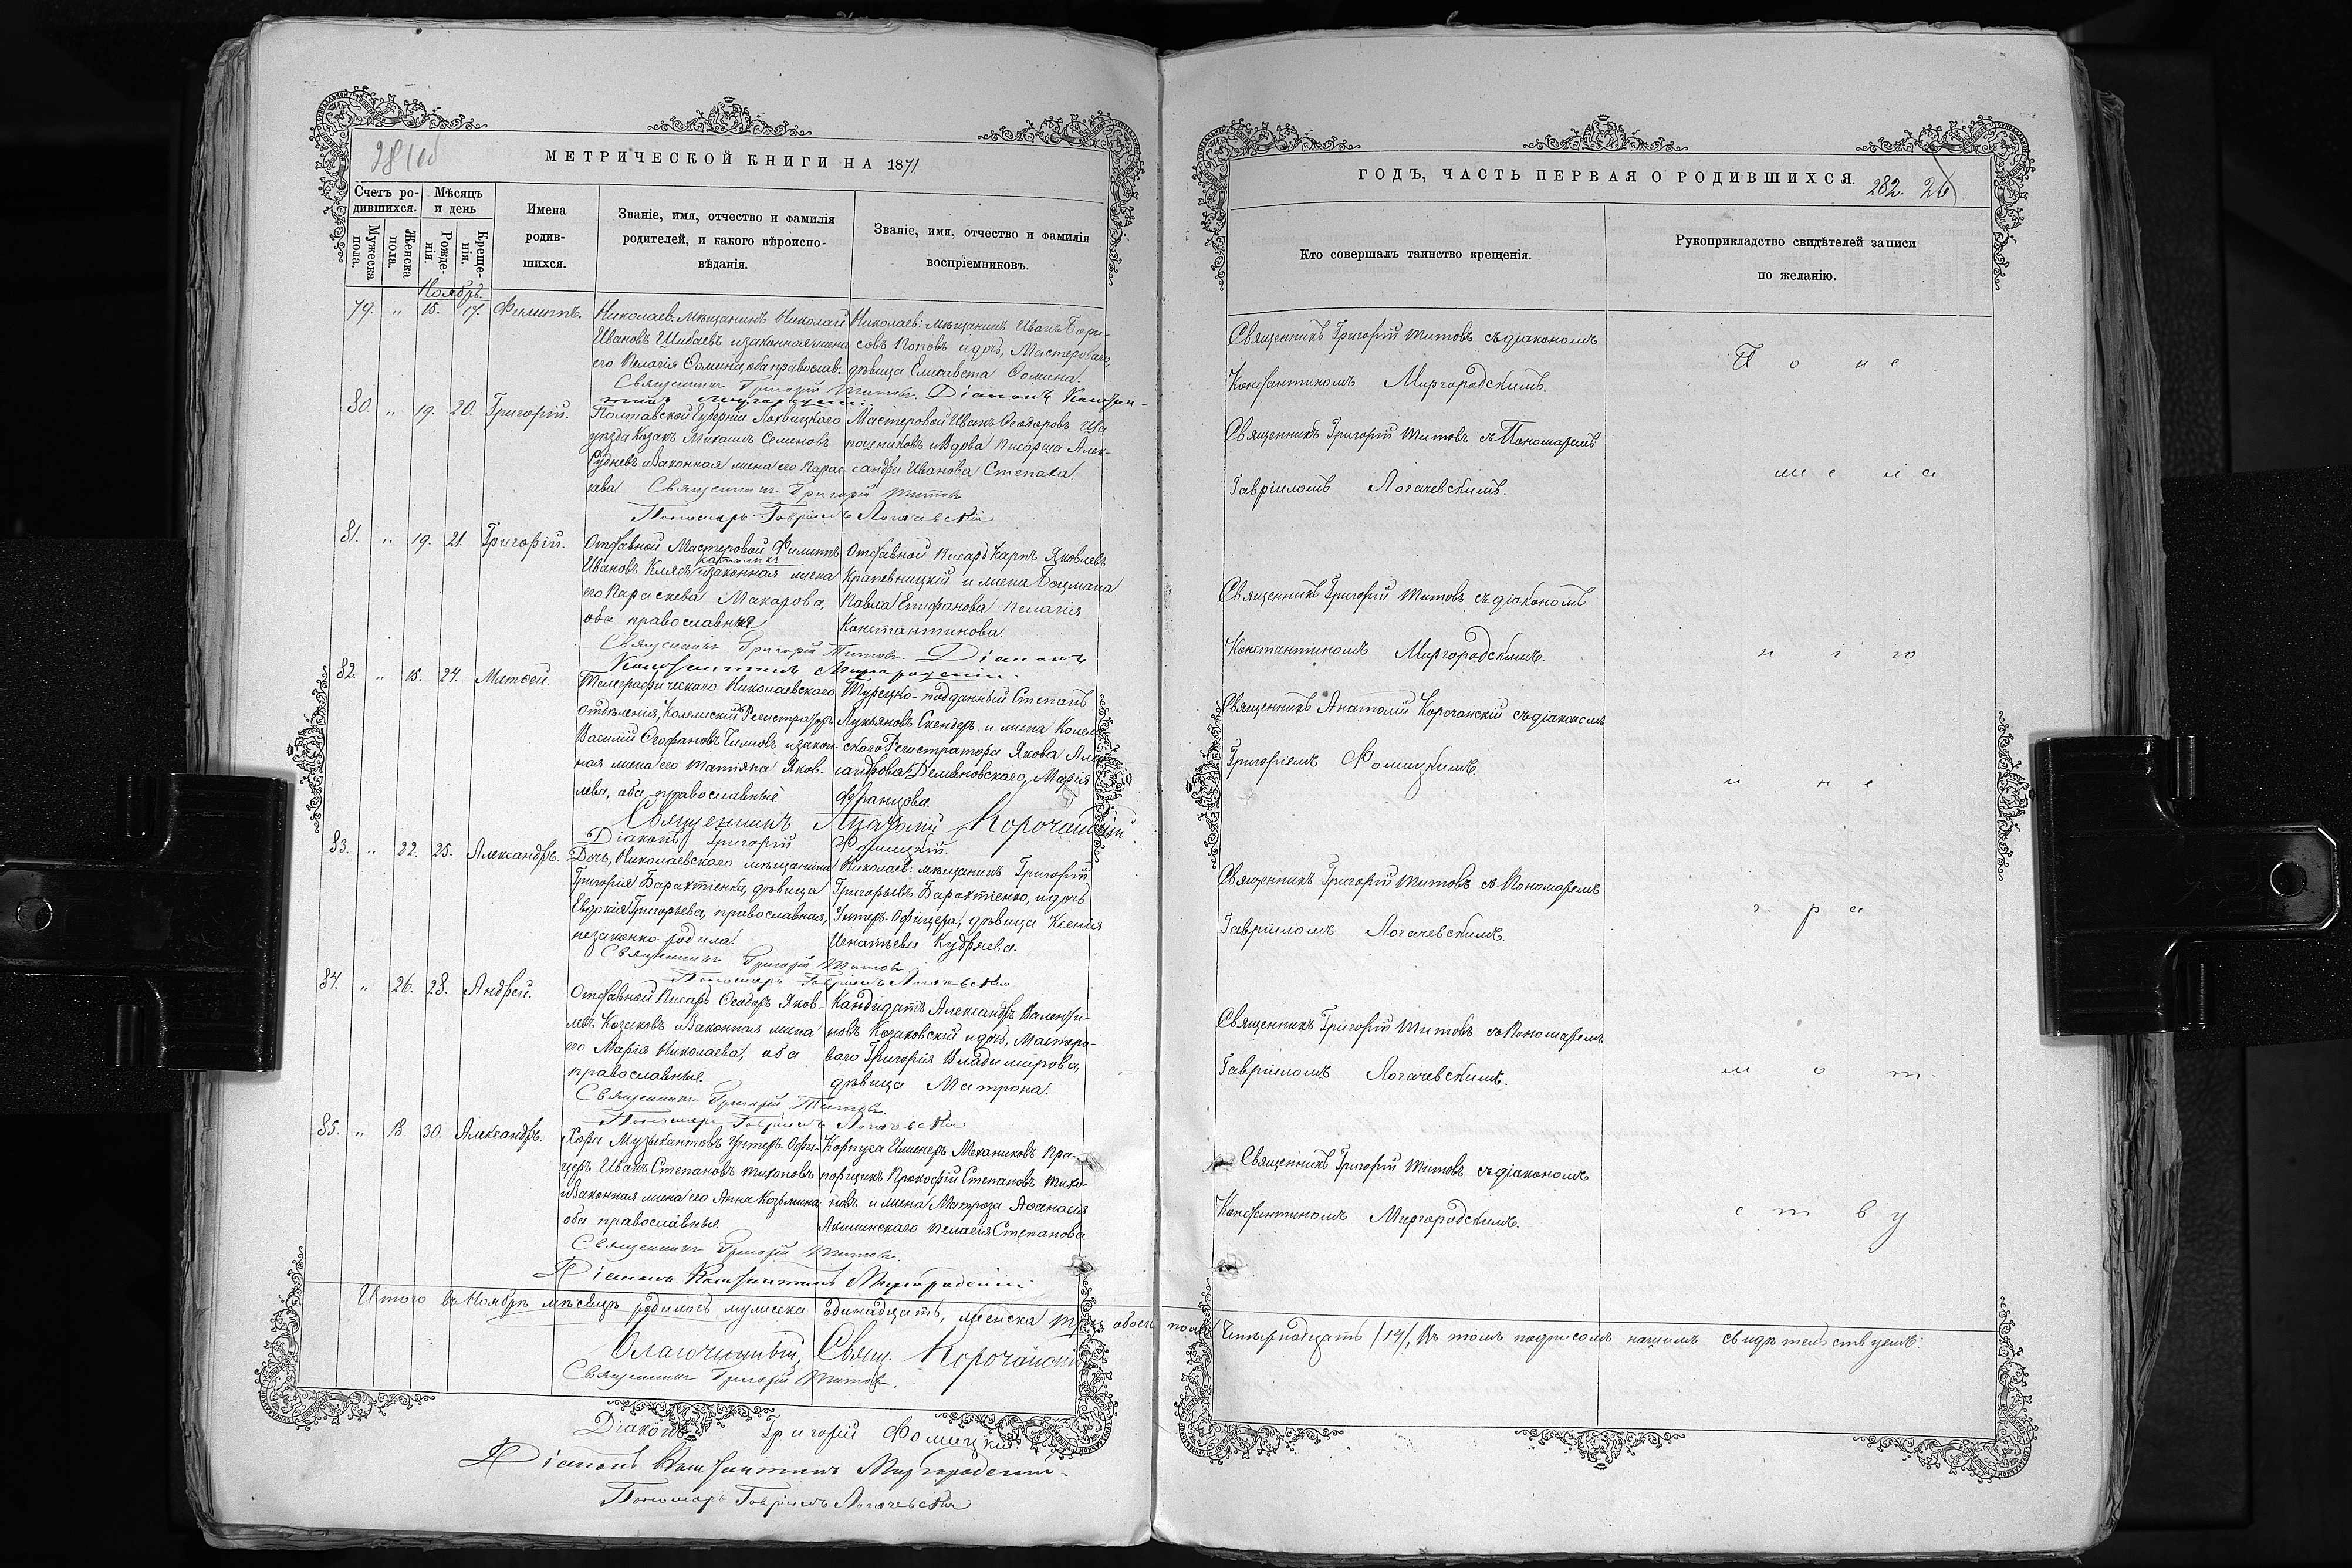 МЕТРИЧЕСКОЙ КНИГИ НА 1871
Счетъ ро-
дившихся.
Мѣсяцъ
и день
Мужеска
пола.
Женска
пола.
Рожде-
нія.
Креще-
нія.
Имена
родив-
шихся.
Званіе, имя, отчество и фамилія
родителей, и какого вѣроиспо-
вѣданія.
Званіе, имя, отчество и фамилія
воспріемниковъ.
Ноябрь.
79. " 15. 17. Филиппъ.
Николаев: мѣщанинъ Николай
Ивановъ Шибаевъ и законная жена
его Пелагія Фомина, оба православ:
Николаев: мѣщанинъ Иванъ Бори-
совъ Поповъ и дочь, Мастероваго
дѣвица Елисавета Фомина.
Священникъ Григорій Титовъ. Діаконъ Констан-
тинъ Миргородскій.
80. " 19. 20. Григорій.
Полтавской Губерніи Лохвицкаго
уѣзда Козакъ Михаилъ Семеновъ
Рудневъ и законная жена его Парас-
кева
Мастеровой Иванъ Ѳеодоровъ
вдова Писарша Алек-
сандра Иванова Степаха.
Священникъ Григорій Титовъ
Пономарь Гавріилъ Логачевскій
81. " 19. 21. Григорій.
Отставной Мастеровой Филиппъ
католикъ
Ивановъ Клясъ и законная жена
его Параскева Макарова,
оба православные
Отставной писарь Карпъ Яковлевъ
Крапевницкій и жена Боцмана
Павла Епифанова Пелагія
Константинова.
Священникъ Григорій Титовъ. Діаконъ
Константинъ Миргородскій.
82. " 15. 24. Митрофанъ.
Телеграфическаго Николаевскаго
отдѣленія, Коллежскій Регистраторъ
Василій Ѳеофановъ Чилновъ и закон-
ная жена его Татіяна Яков-
лева, оба православные
Турецко-подданный Степанъ
Лукьяновъ Скендеръ и жена Коллеж-
скаго Регистратора Якова Алек-
сандрова Демяновскаго, Марія
Францова.
Священникъ Анатолій Корочанскій
Діаконъ Григорій Фомицкій.
83. " 22. 25. Александръ.
Дочь, Николаевскаго мѣщанина
Григорія Барахтіенка, дѣвица
Евдокія Григорьева, православная,
незаконно-родила.
Николаев: мѣщанинъ Григорій
Григорьевъ Барахтіенко, и дочь
Унтеръ Офицера, дѣвица Ксенія
Игнатьева Кудряева.
Священникъ Григорій Титовъ
Пономарь Гавріилъ Логачевскій
84. " 26. 28. Андрей.
Отставной Писарь Ѳеодоръ Яков-
левъ Козаковъ и законная жена
его Марія Николаева, оба
православные.
Кандидатъ Александръ Валенти-
новъ Козаковскій и дочь, Мастеро-
ваго Григорія Владимирова,
дѣвица Матрона.
Священникъ Григорій Титовъ.
Пономарь Гавріилъ Логачевскій
85. " 18. 30. Александръ.
Хора Музыкантовъ Унтеръ Офи-
церъ Иванъ Степановъ Тихоновъ
и законная жена его Анна Козьмина
оба православные
Корпуса Инженеръ Механиковъ Пра-
порщикъ Прокофій Степановъ Тихо-
новъ и жена Матроза Аѳанасія
Пелагія Степанова
Священникъ Григорій Титовъ.
Діаконъ Константинъ Миргородскій
Итого въ Ноябрѣ мѣсяцѣ родилось мужеска одинадцать, женска три, обоего пола
Благочинный, Свящ. Корочанскій
Священникъ Григорій Титовъ.
Діаконъ Григорій Фомицкій
Діаконъ Константинъ Миргородскій.
Пономарь Гавріилъ Логачевскій
ГОДЪ, ЧАСТЬ ПЕРВАЯ О РОДИВШИХСЯ.
282. 26
Кто совершалъ таинство крещенія.
Рукоприкладство свидѣтелей записи
по желанію.
Священникъ Григорій Титовъ съ діакономъ
Константиномъ Миргородскимъ.
П о н е
Священникъ Григорій Титовъ съ Пономаремъ
Гавріиломъ Логачевскимъ.
ж е л а
Священникъ Григорій Титовъ съ діакономъ
Константиномъ Миргородскимъ.
н і ю
Священникъ Анатолій Корочанскій съ діакономъ
Григоріемъ Фомицкимъ.
и н е
Священникъ Григорій Титовъ съ Пономаремъ
Гавріиломъ Логачевскимъ.
г р а
Священникъ Григорій Титовъ съ Пономаремъ
Гавріиломъ Логачевскимъ.
м о т
Священникъ Григорій Титовъ съ діакономъ
Константиномъ Миргородскимъ.
с т в у
Четырнадцать /14/, Въ томъ подписомъ нашимъ свидѣтельствуемъ: